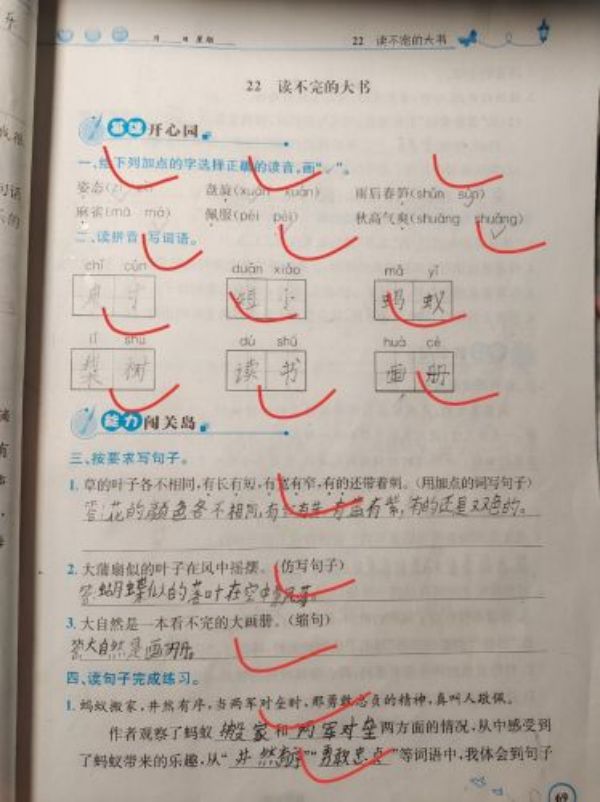 月 日 星期 22 读不完的大书
22 读不完的大书
基础开心园
一、给下列加点的字选择正确的读音,画“✓”。
姿态( 盘旋(xuán xuàn) 雨后春笋(shǔn sǔn)
麻雀(mā má) 佩服(pèi péi) 秋高气爽(shuāng shuǎng)
二、读拼音,写词语。
chǐ cùn duǎn xiǎo mǎ yǐ
尺寸 短小 蚂蚁
lí shù dú shū huà cè
梨树 读书 画册
能力闯关岛
三、按要求写句子。
1. 草的叶子各不相同,有长有短,有宽有窄,有的还带着刺。(用加点的词写句子)
答:花的颜色各不相同,有 有 有蓝有紫,有的还是双色的。
2. 大蒲扇似的叶子在风中摇摆。(仿写句子)
答:蝴蝶似的落叶在空中
3. 大自然是一本看不完的大画册。(缩句)
答:大自然是画册。
四、读句子完成练习。
1. 蚂蚁搬家,井然有序,当两军对垒时,那勇敢忠贞的精神,真叫人敬佩。
作者观察了蚂蚁 搬家 和 两军对垒 两方面的情况,从中感受到
了蚂蚁带来的乐趣,从“井然有序”“勇敢忠贞”等词语中,我体会到句子
69